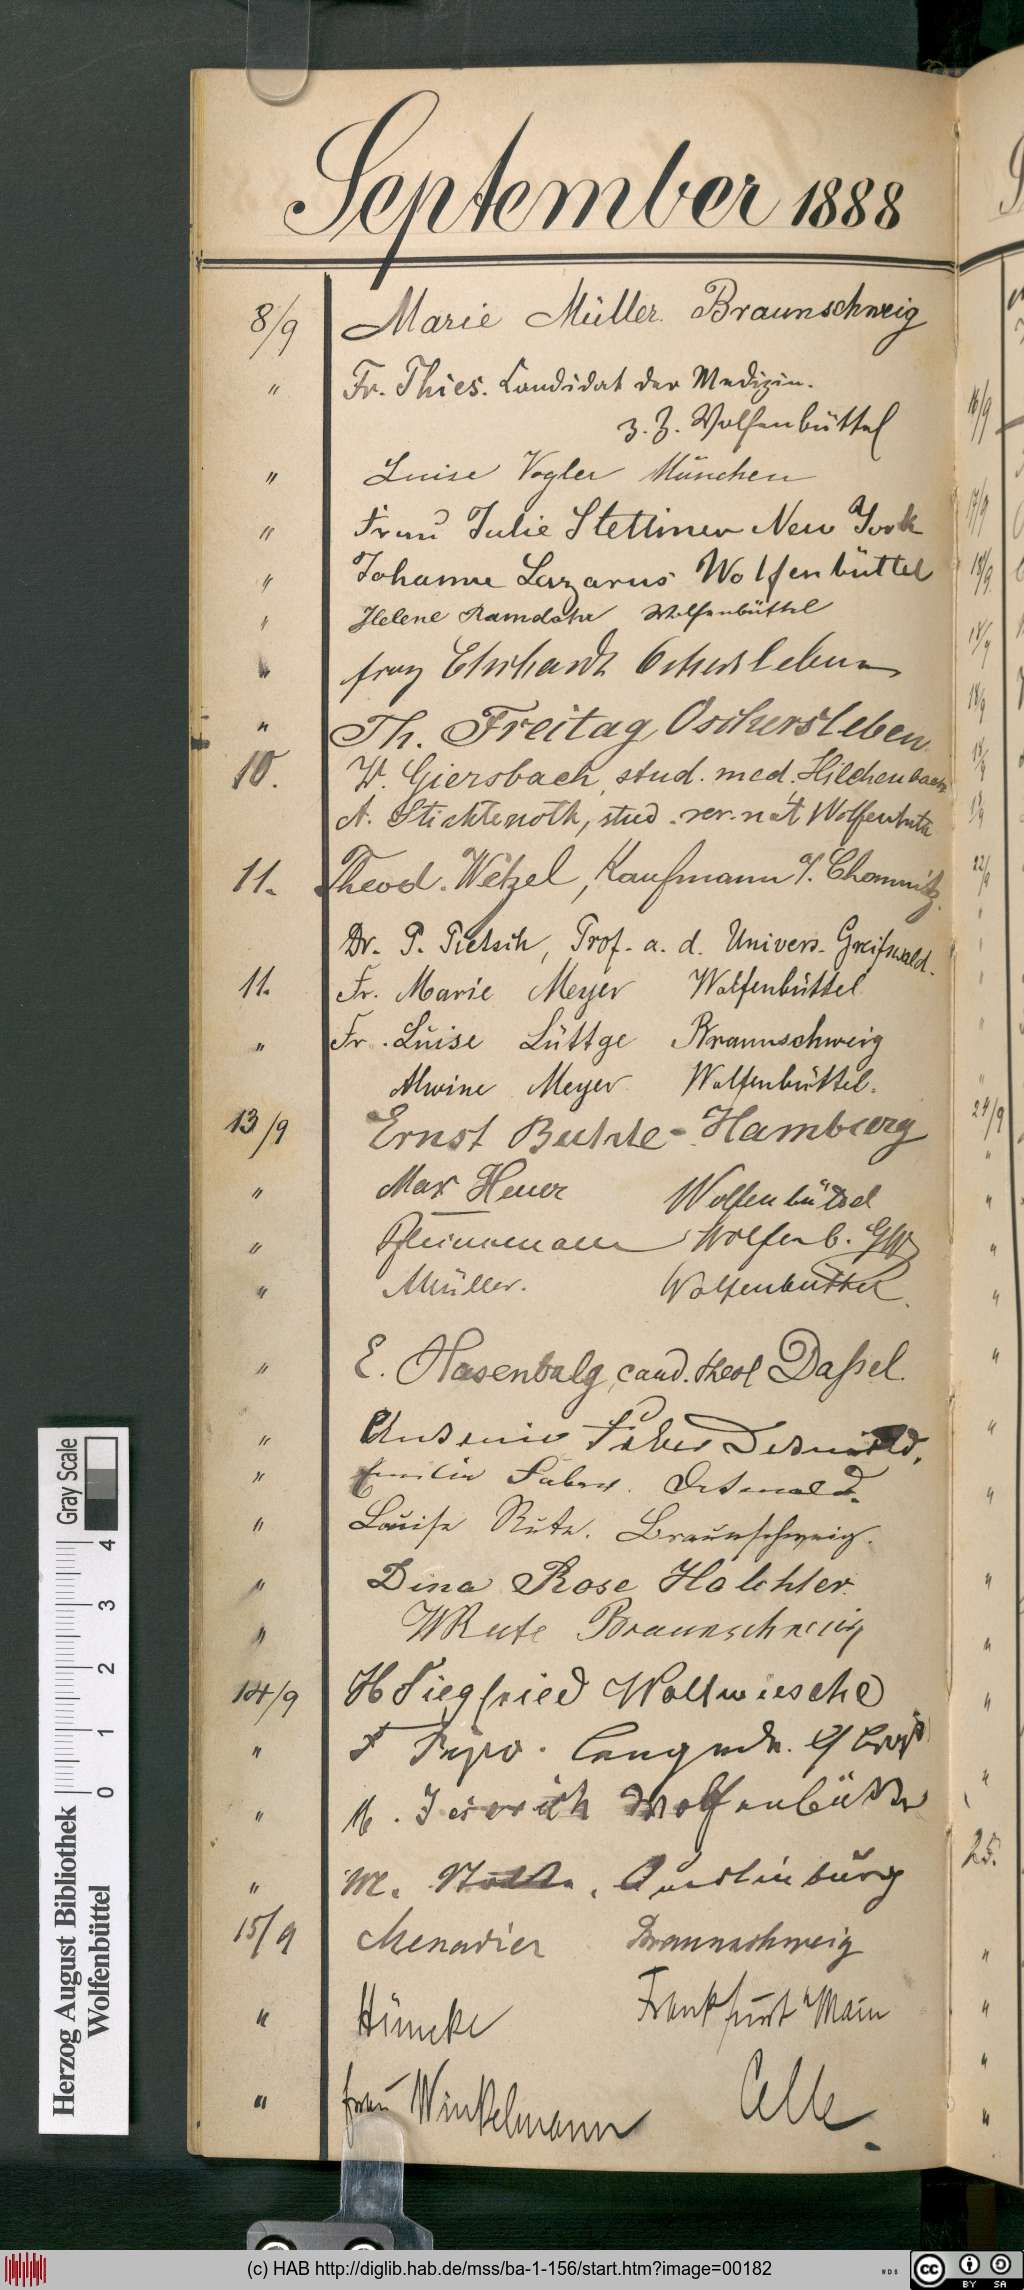 September 1888
8/9 Marie Müller. Braunschweig
" Fr. Thies. Candidat der Medizin.
z. Z. Wolfenbüttel
" Luise Vogler München
" Frau Julie Stettiner New York
" Johanne Lazarus Wolfenbüttel
" Helene Ramdohr Wolfenbüttel
" frau Ehrhardt Oschersleben
" Th. Freitag Oschersleben
10. W. Giersbach, stud. med. Hilchenbach
A. Stichtenoth, stud. rer. nat Wolfenbüttel
11. Theod. Wetzel, Kaufmann a/. Chemnitz.
Dr. P. Pietsch, Prof. a. d. Univers. Greifswald.
11. Fr. Marie Meyer Wolfenbüttel
" Fr. Luise Lüttge Braunschweig
Alwine Meyer Wolfenbüttel.
13/9 Ernst - Hamburg
" Max Heuer Wolfenbüttel
" Wolfenb.
" Müller. Wolfenbüttel.
" E. Hasenbalg, cand. theol Daßel.
" Antonie Faber Detmold.
" Emilie Faber. Detmold.
" Louise Rute. Braunschweig.
" Dina Rose Halchter.
" W Rute Braunschweig
14/9 H Siegfried Woltwiesche
" F
" M. Wolfenbüttel
" M. Quedlinburg
15/9 Menadier Braunschweig
" Hüncke Frankfurt a/Main
" frau Winkelmann Celle.
16/9
17/9
18/9
18/9
22/9
24/9
25.
Herzog August Bibliothek
Wolfenbüttel
Gray Scale
0 1 2 3 4
(c) HAB http://diglib.hab.de/mss/ba-1-156/start.htm?image=00182
cc BY SA